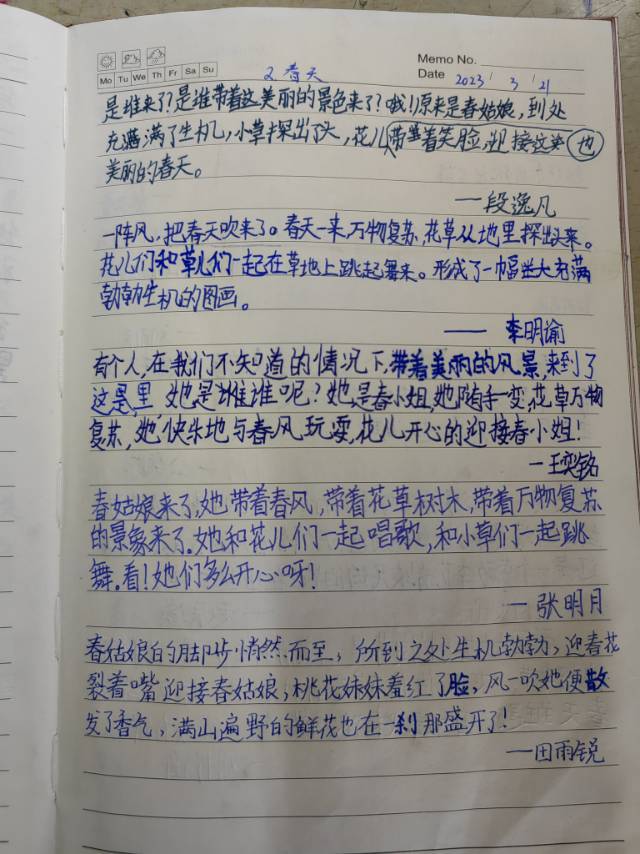 Memo No.
Mo Tu We Th Fr Sa Su
Date 2023 / 3 / 21
2 春天
是谁来了?是谁带着这美丽的景色来了?哦!原来是春姑娘,到处
充满满了生机,小草探出了头,花儿带着笑脸,迎接这来也
美丽的春天。
——段逸凡
一阵风,把春天吹来了。春天一来,万物复苏,花草从地里探出头来。
花儿们和草儿们一起在草地上跳起舞来。形成了一幅幅充满
勃勃生机的图画。
——李明谕
有个人,在我们不知道的情况下,带着美丽的风景,来到了
这里,她是谁呢?她是春小姐,她随手一变,花草万物
复苏,她快乐地与春风玩耍,花儿开心的迎接春小姐!
—王奕铭
春姑娘来了,她带着春风,带着花草树木,带着万物复苏
的景象来了。她和花儿们一起唱歌,和小草们一起跳
舞。看!她们多么开心呀!
—张明月
春姑娘的脚步悄然而至,所到之处生机勃勃,迎春花
裂着嘴迎接春姑娘,桃花妹妹羞红了脸,风一吹她便散
发了香气,满山遍野的鲜花也在一刹那盛开了!
—田雨锐